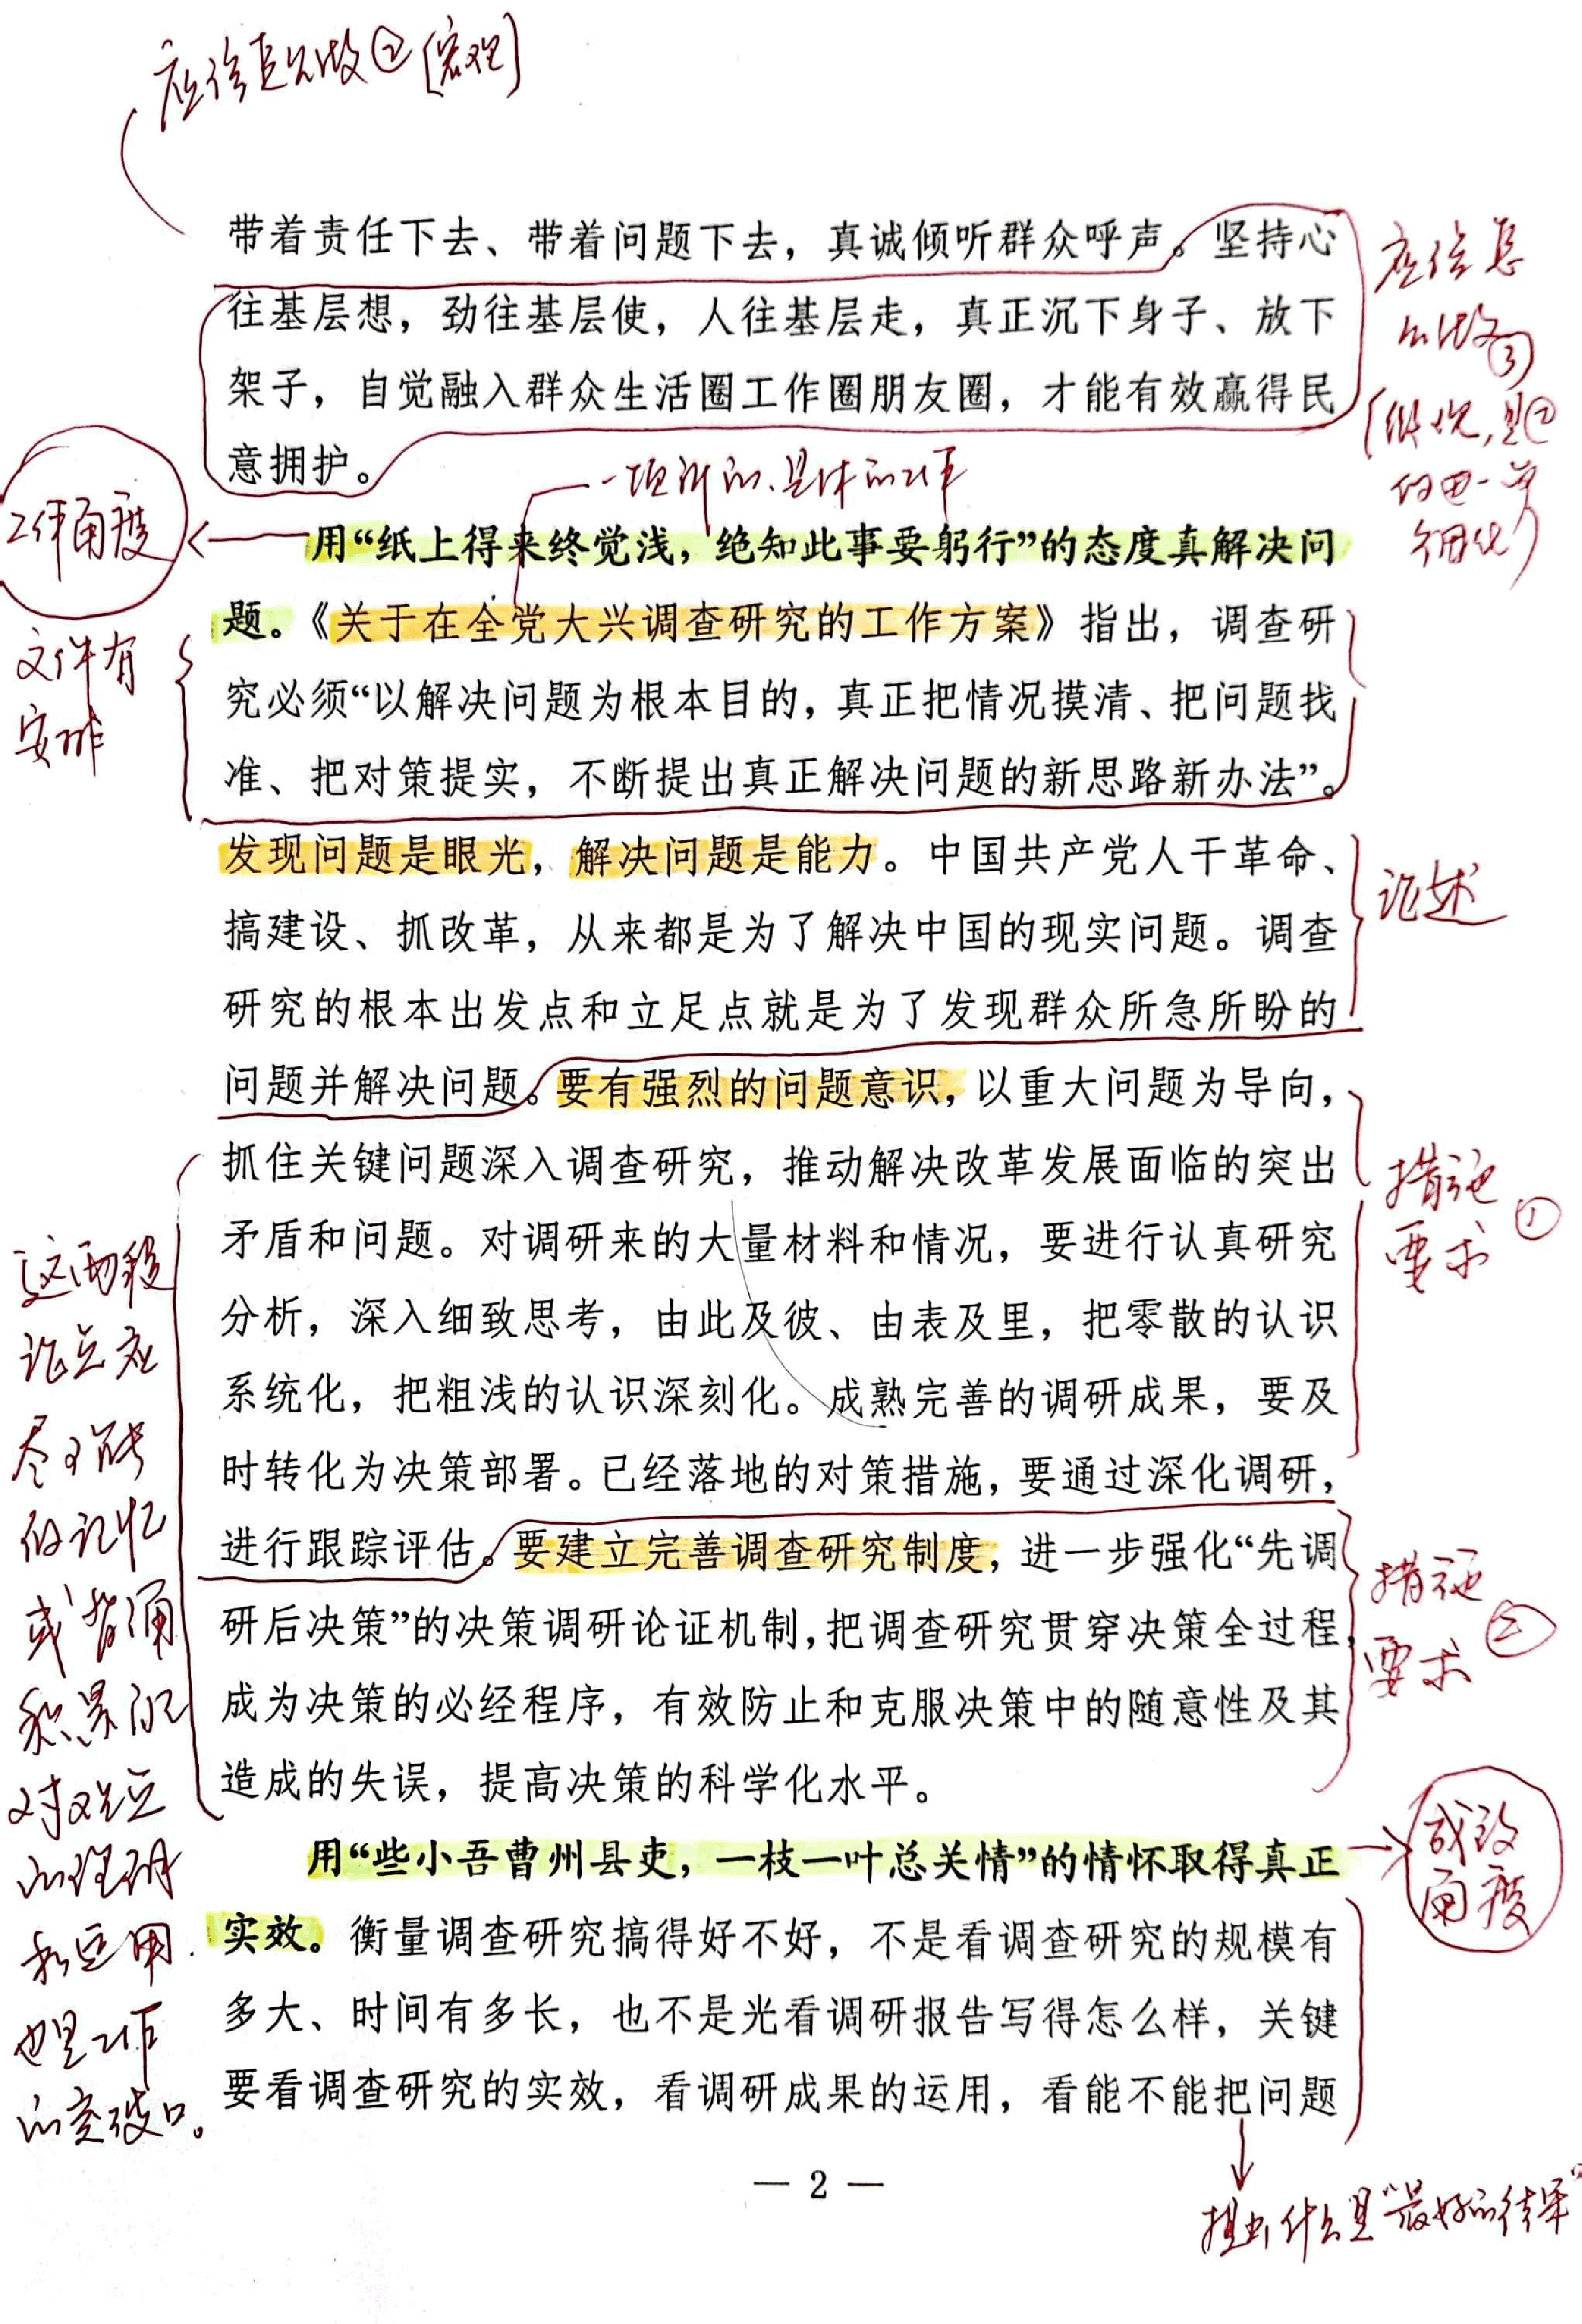 应该怎么做②[宏观]
带着责任下去、带着问题下去，真诚倾听群众呼声。坚持心
往基层想，劲往基层使，人往基层走，真正沉下身子、放下
架子，自觉融入群众生活圈工作圈朋友圈，才能有效赢得民
意拥护。
应该怎
么做③
[微观，是②
的进一步
细化]
一项新的、具体的工作
工作角度
用“纸上得来终觉浅，绝知此事要躬行”的态度真解决问
题。《关于在全党大兴调查研究的工作方案》指出，调查研
究必须“以解决问题为根本目的，真正把情况摸清、把问题找
准、把对策提实，不断提出真正解决问题的新思路新办法”。
文件有
安排
发现问题是眼光，解决问题是能力。中国共产党人干革命、
搞建设、抓改革，从来都是为了解决中国的现实问题。调查
研究的根本出发点和立足点就是为了发现群众所急所盼的
问题并解决问题。要有强烈的问题意识，以重大问题为导向，
论述
抓住关键问题深入调查研究，推动解决改革发展面临的突出
矛盾和问题。对调研来的大量材料和情况，要进行认真研究
分析，深入细致思考，由此及彼、由表及里，把零散的认识
系统化，把粗浅的认识深刻化。成熟完善的调研成果，要及
时转化为决策部署。已经落地的对策措施，要通过深化调研，
进行跟踪评估。要建立完善调查研究制度，进一步强化“先调
研后决策”的决策调研论证机制，把调查研究贯穿决策全过程，
成为决策的必经程序，有效防止和克服决策中的随意性及其
造成的失误，提高决策的科学化水平。
措施
要求①
措施
要求②
这两段
论点应
尽可能
的记忆
或背诵
积累的
对观点
的理解
和运用
也是工作
的突破口。
用“些小吾曹州县吏，一枝一叶总关情”的情怀取得真正
实效。衡量调查研究搞得好不好，不是看调查研究的规模有
多大、时间有多长，也不是光看调研报告写得怎么样，关键
要看调查研究的实效，看调研成果的运用，看能不能把问题
成效
角度
— 2 —
提出什么是“最好的结果”